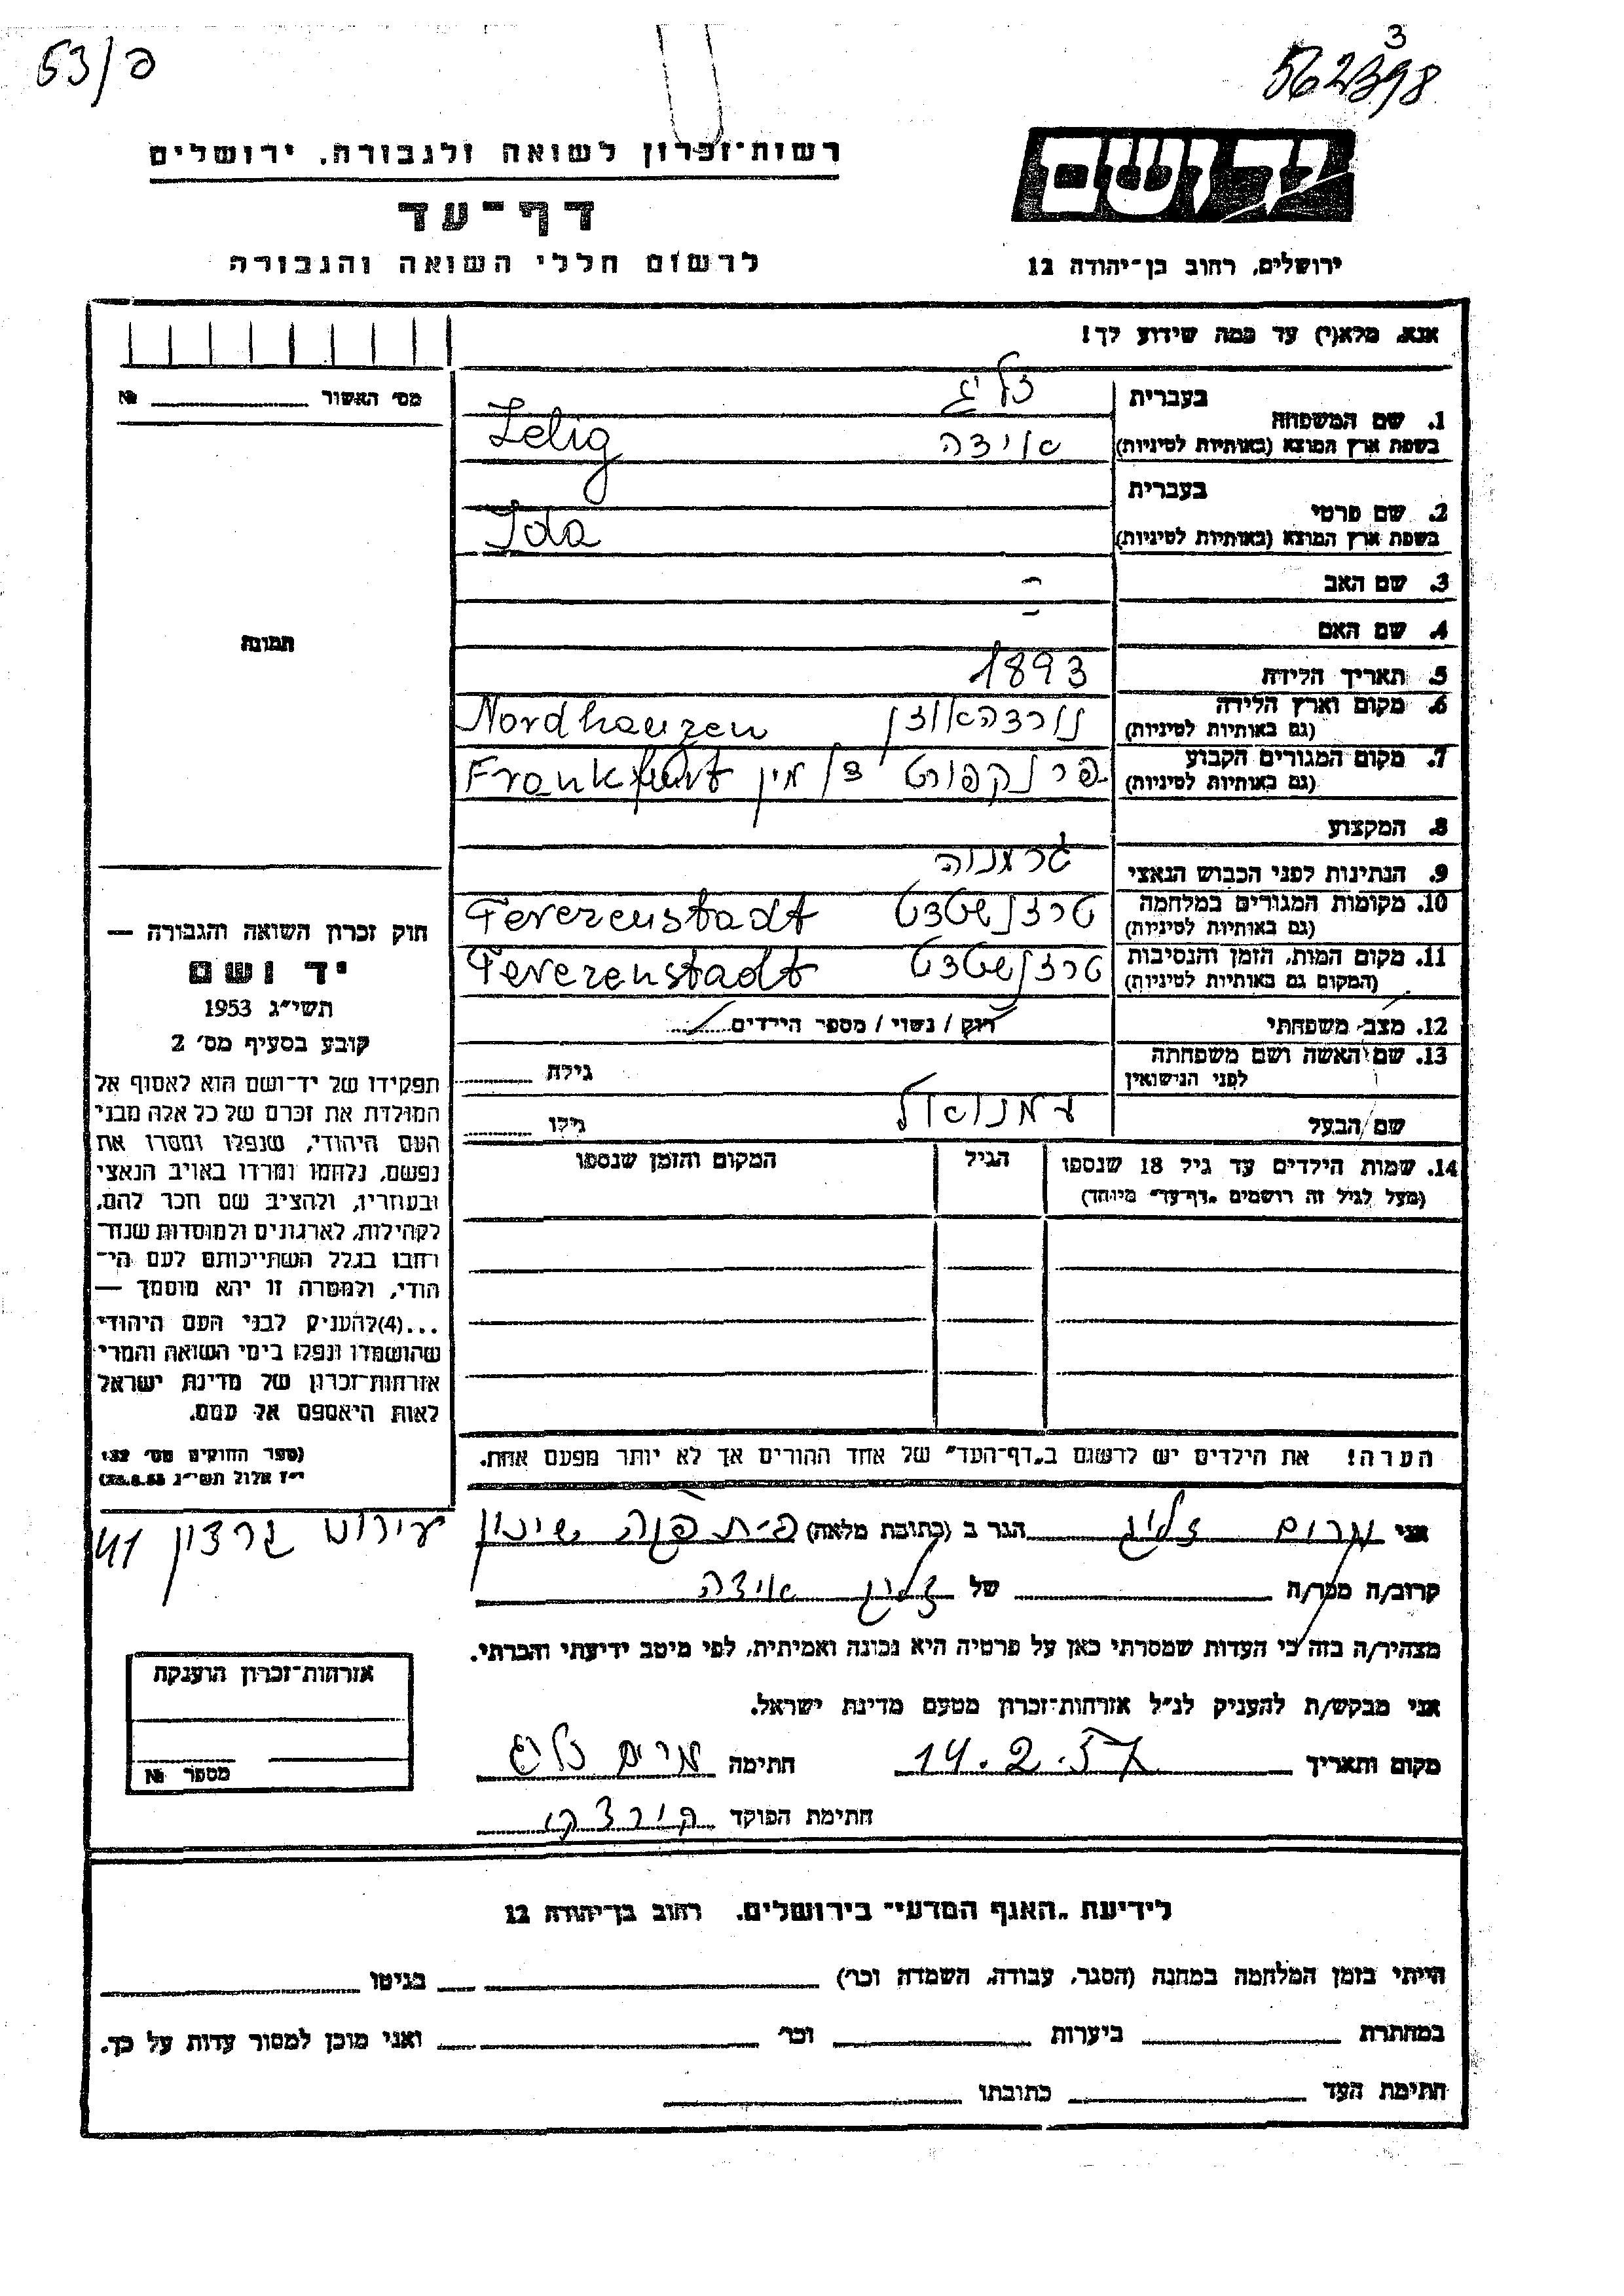 53/פ
3
562398
רשות-זכרון לשואה ולגבורה. ירושלים
דף-עד
לרשום חללי השואה והגבורה
יד ושם
ירושלים, רחוב בן-יהודה 12
אנא, מלא(י) עד כמה שידוע לך!
מס׳ האשור №
תמונה
1. שם המשפחה
בעברית זליג
בשפת ארץ המוצא (באותיות לטיניות) אידה Zelig
2. שם פרטי
בעברית
בשפת ארץ המוצא (באותיות לטיניות) Ida
3. שם האב -
4. שם האם -
5. תאריך הלידה 1893
6. מקום וארץ הלידה נורדהאוזן Nordhauzen
(גם באותיות לטיניות)
7. מקום המגורים הקבוע פרנקפורט ד/מין Frankfurt
(גם באותיות לטיניות)
8. המקצוע
9. הנתינות לפני הכבוש הנאצי גרמניה
10. מקומות המגורים במלחמה טרזנשטדט Tererenstadt
(גם באותיות לטיניות)
11. מקום המות, הזמן והנסיבות טרזנשטדט Tererenstadt
(המקום גם באותיות לטיניות)
12. מצב משפחתי רוק / נשוי / מספר הילדים
13. שם האשה ושם משפחתה
לפני הנישואין
גילה
שם הבעל עמנואל גילו
14. שמות הילדים עד גיל 18 שנספו
(מעל לגיל זה רושמים „דף-עד" מיוחד)
הגיל
המקום והזמן שנספו
הערה! את הילדים יש לרשום ב„דף-העד" של אחד ההורים אך לא יותר מפעם אחת.
חוק זכרון השואה והגבורה —
יד ושם
תשי״ג 1953
קובע בסעיף מס׳ 2
תפקידו של יד-ושם הוא לאסוף אל
המולדת את זכרם של כל אלה מבני
העם היהודי, שנפלו ומסרו את
נפשם, נלחמו ומרדו באויב הנאצי
ובעוזריו, ולהציב שם וזכר להם,
לקהילות, לארגונים ולמוסדות שנח-
רבו בגלל השתייכותם לעם הי-
הודי, ולמטרה זו יהא מוסמך —
...(4)להעניק לבני העם היהודי
שהושמדו ונפלו בימי השואה והמרי
אזרחות-זכרון של מדינת ישראל
לאות היאספם אל עמם.
(ספר החוקים מס׳ 132
י״ז אלול תשי״ג 28.8.53)
אני מרים זליג הגר ב (כתובת מלאה) פ״ת שיכון
קרוב/ה מכר/ה של זליג אידה
מצהיר/ה בזה כי העדות שמסרתי כאן על פרטיה היא נכונה ואמיתית, לפי מיטב ידיעתי והכרתי.
אני מבקש/ת להעניק לנ״ל אזרחות-זכרון מטעם מדינת ישראל.
מקום ותאריך 14.2.57 חתימה מרים זליג
חתימת הפוקד
אזרחות-זכרון הוענקה
מספר №
לידיעת „האגף המדעי" בירושלים. רחוב בן-יהודה 12
הייתי בזמן המלחמה במחנה (הסגר, עבודה, השמדה וכר׳) בגיטו
במחתרת ביערות וכר׳ ואני מוכן למסור עדות על כך.
חתימת העד כתובתו